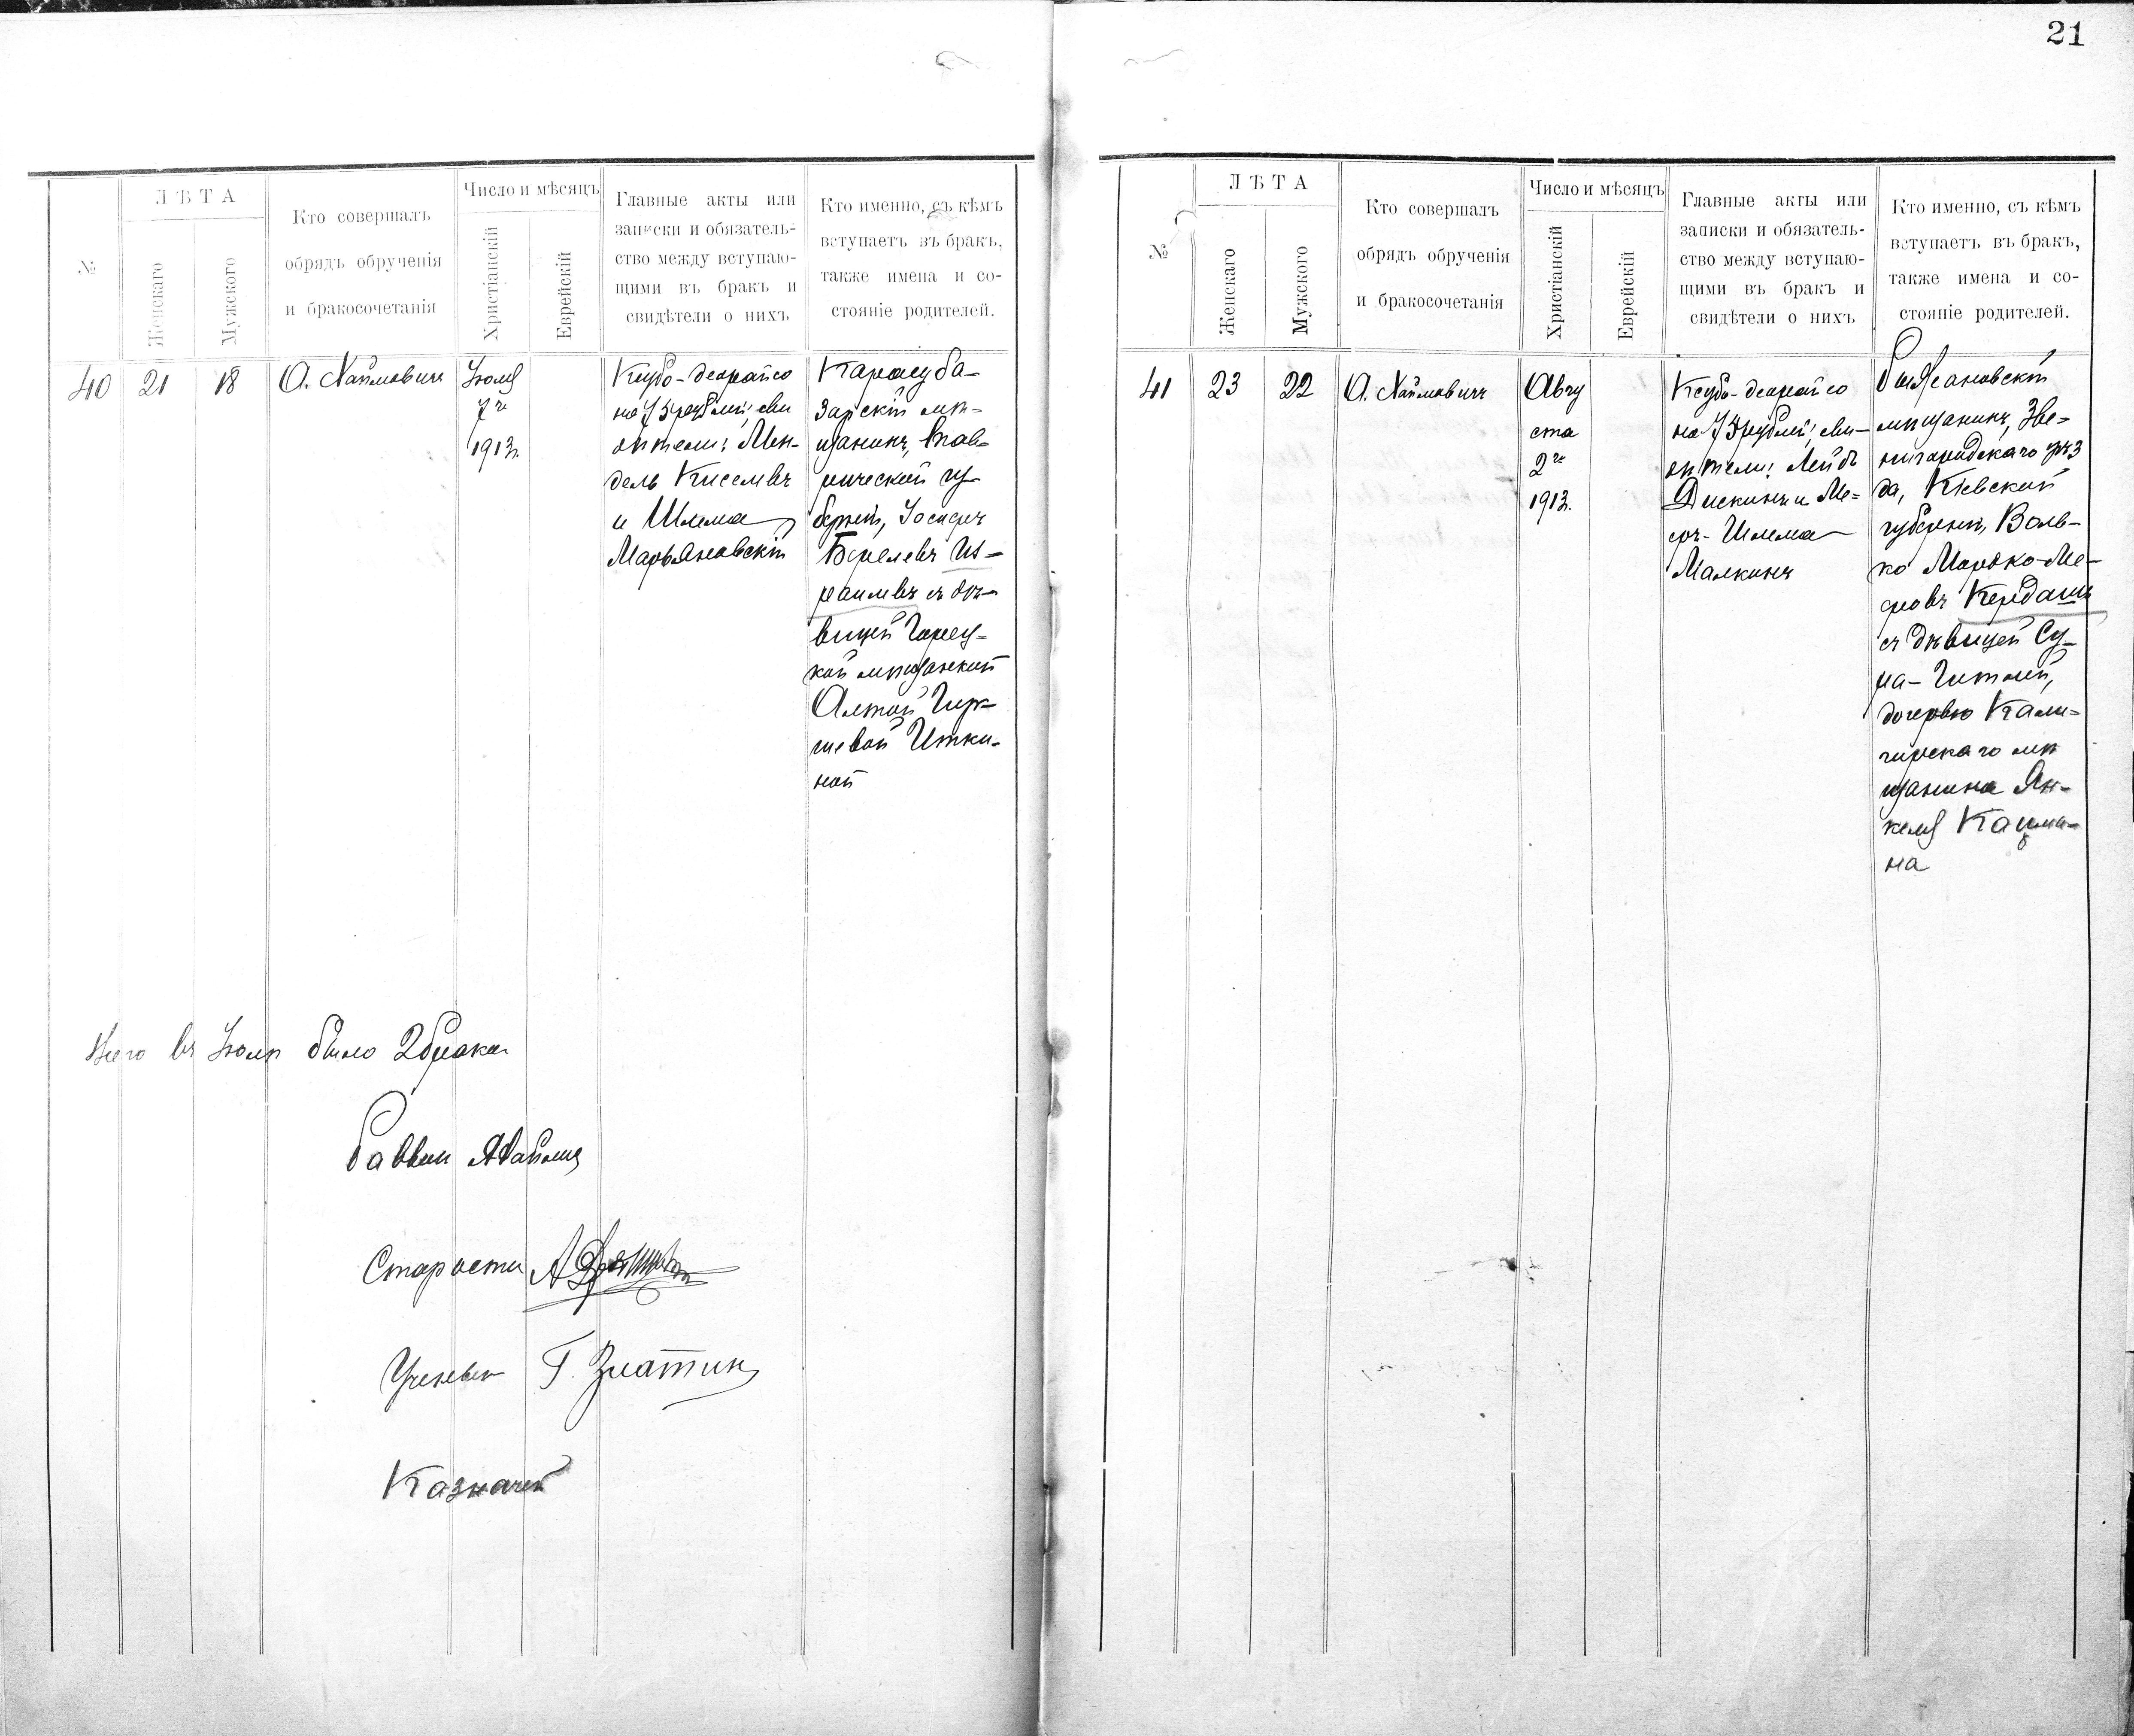 21
№
ЛѢТА
Женскаго
Мужского
Кто совершалъ
обрядъ обрученія
и бракосочетанія
Число и мѣсяцъ
Христіанскій
Еврейскій
Главные акты или
записки и обязатель-
ство между вступаю-
щими въ бракъ и
свидѣтели о нихъ
Кто именно, съ кѣмъ
вступаетъ въ бракъ,
также имена и со-
стояніе родителей.
40
21
18
О. Хаймовичъ
Іюля
7го
1913г.
Ксубо-деорайсо
на 75 рублей; сви
дѣтели: Мен-
дель Киселевъ
и Шлема
Марьяновскій
Карасуба-
зарскій мѣ-
щанинъ, Тав-
рической гу-
берніи, Іосифъ
Берелевъ Из-
раилевъ съ дѣ-
вицей Горец-
кой мѣщанкой
Алтой Гир-
шевой Итки-
ной
Всего въ Іюлѣ было 2 брака
Раввин
Староста
Ученый Г. Златкин
Казначей
№
ЛѢТА
Женскаго
Мужского
Кто совершалъ
обрядъ обрученія
и бракосочетанія
Число и мѣсяцъ
Христіанскій
Еврейскій
Главные акты или
записки и обязатель-
ство между вступаю-
щими въ бракъ и
свидѣтели о нихъ
Кто именно, съ кѣмъ
вступаетъ въ бракъ,
также имена и со-
стояніе родителей.
41
23
22
О. Хаймовичъ
Авгу
ста
2го
1913г.
Ксубо-деорайсо
на 75 рублей; сви-
дѣтели: Лейбъ
Дискинъ и Ме-
еръ-Шлема
Малкинъ
Рыжановскій
мѣщанинъ, Зве-
нигородскаго уѣз
да, Кіевской
губерніи, Воль-
ко Мордко-Ме-
еровъ Кердашъ
съ дѣвицей Су-
ра-Гитлей,
дочерью Кали-
гирскаго мѣ
щанина Ян-
келя Кацма-
на